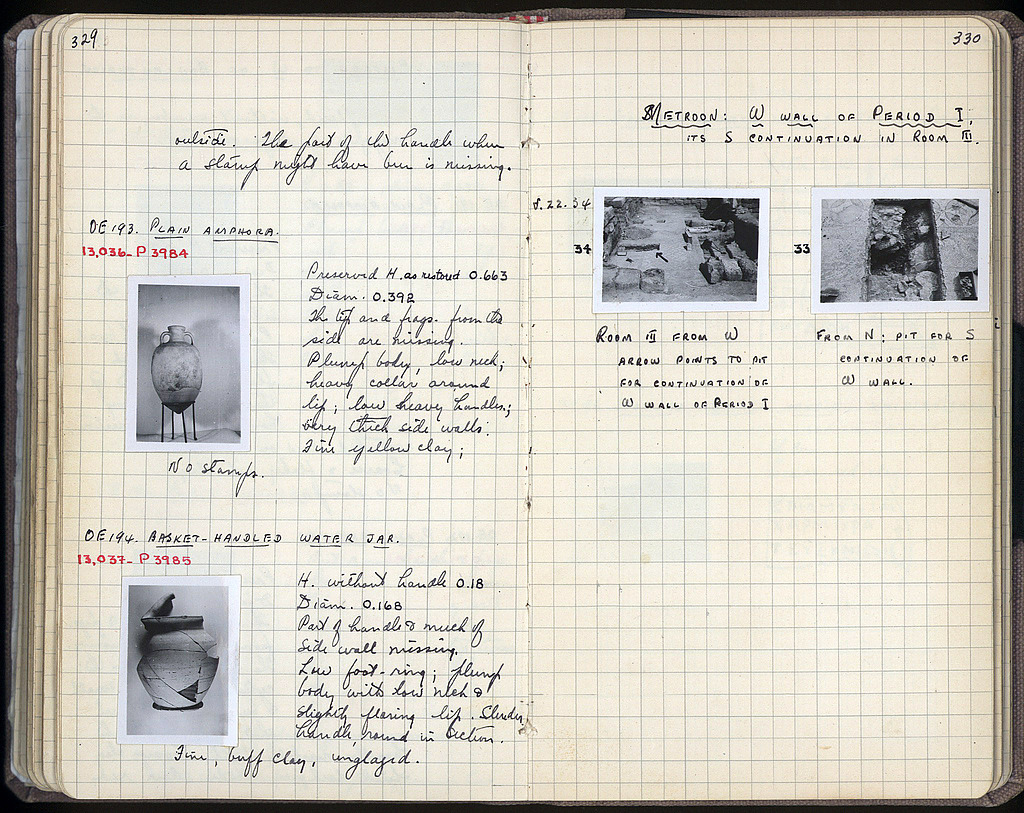 329
outside. The part of the handle where
a stamp might have been is missing.
OE 193. PLAIN AMPHORA.
13,036 - P 3984
Preserved H. as restored 0.663
Diam. 0.392
The tip and frags. from the
side are missing.
Plump body, low neck;
heavy collar around
lip; low heavy handles;
very thick side walls.
Fine yellow clay;
No stamps.
OE 194. BASKET-HANDLED WATER JAR.
13,037 - P 3985
H. without handle 0.18
Diam. 0.168
Part of handle & much of
side wall missing.
Low foot-ring; plump
body with low neck &
slightly flaring lip. Slender
handle, round in section.
Fine, buff clay, unglazed.
330
METROON: W WALL OF PERIOD I;
ITS S CONTINUATION IN ROOM III.
22.34
34
33
ROOM III FROM W
ARROW POINTS TO PIT
FOR CONTINUATION OF
W WALL OF PERIOD I
FROM N; PIT FOR S
CONTINUATION OF
W WALL.